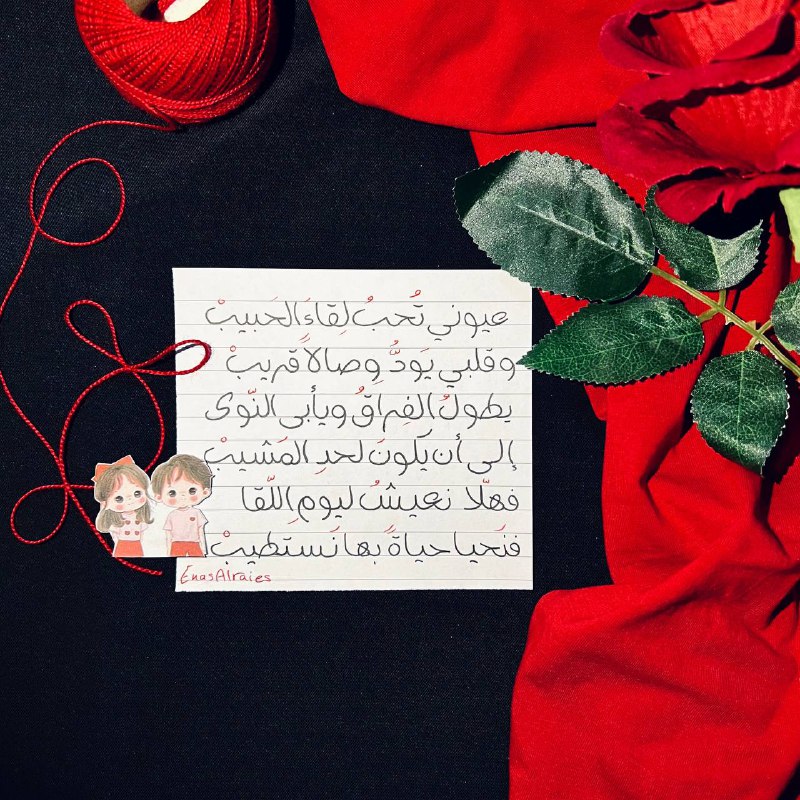 عيوني تُحبُ لِقاءَ الحَبيبْ
وقلبي يَودُّ وِصالاً قَريبْ
يطولُ الفِراقُ ويأبى النّوى
إلى أن يَكونَ لحدِ المَشيبْ
فهلّا نعيشُ ليومِ اللّقا
فنَحيا حياةً بها نَستطيبْ
EnasAlraies